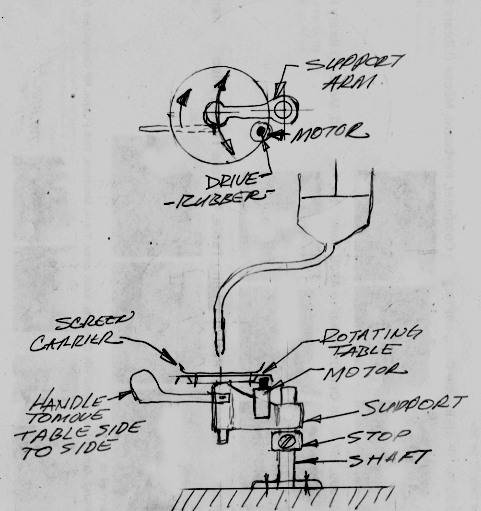 SUPPORT
ARM
MOTOR
DRIVE
-RUBBER-
SCREEN
CARRIER
ROTATING
TABLE
MOTOR
HANDLE
TO MOVE
TABLE SIDE
TO SIDE
SUPPORT
STOP
SHAFT